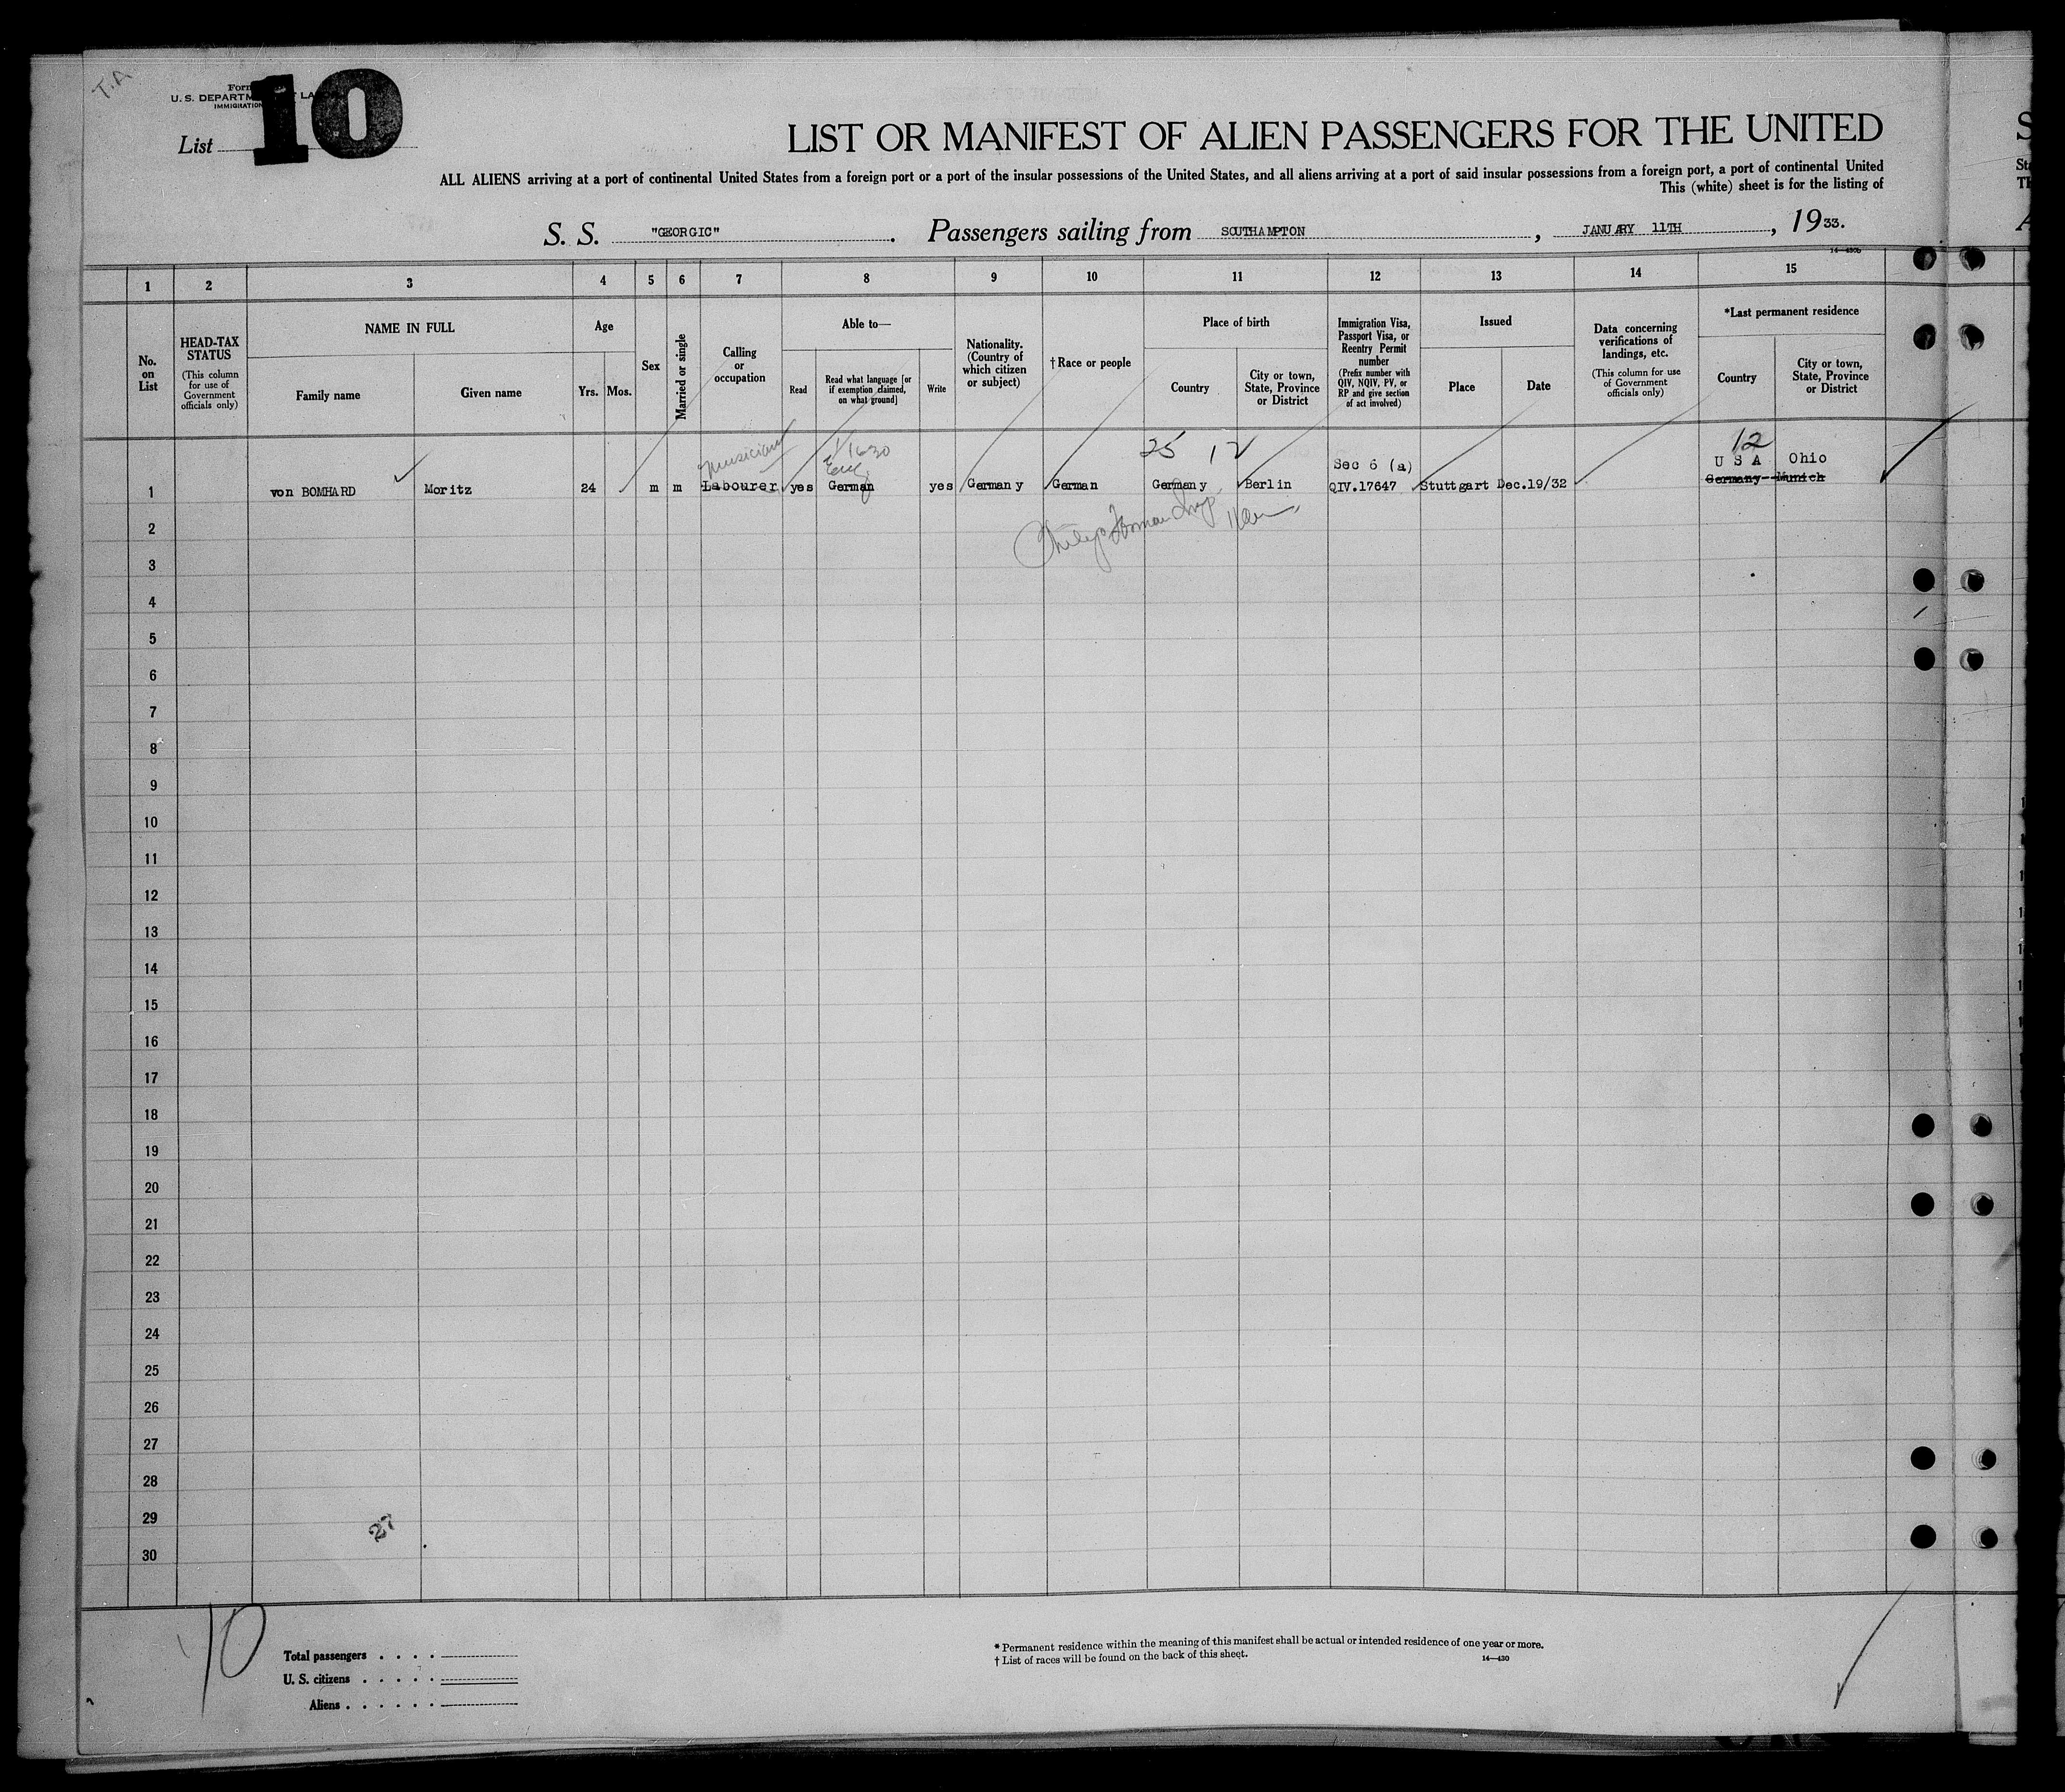 T.A
Form
U. S. DEPARTM T LA
IMMIGRATION
List 10
LIST OR MANIFEST OF ALIEN PASSENGERS FOR THE UNITED
ALL ALIENS arriving at a port of continental United States from a foreign port or a port of the insular possessions of the United States, and all aliens arriving at a port of said insular possessions from a foreign port, a port of continental United
This (white) sheet is for the listing of
S. S. "GEORGIC". Passengers sailing from SOUTHAMPTON, JANUARY 11TH, 1933.
14—430b
1 2 3 4 5 6 7 8 9 10 11 12 13 14 15
No. on List
HEAD-TAX STATUS (This column for use of Government officials only)
NAME IN FULL
Family name
Given name
Age
Yrs. Mos.
Sex
Married or single
Calling or occupation
Able to—
Read
Read what language [or if exemption claimed, on what ground]
Write
Nationality. (Country of which citizen or subject)
†Race or people
Place of birth
Country
City or town, State, Province or District
Immigration Visa, Passport Visa, or Reentry Permit number (Prefix number with QIV, NQIV, PV, or RP and give section of act involved)
Issued
Place
Date
Data concerning verifications of landings, etc. (This column for use of Government officials only)
*Last permanent residence
Country
City or town, State, Province or District
musician 1/1630 25 12 12
Eng. Sec 6 (a) U S A Ohio
1 von BOMHARD Moritz 24 m m Labourer yes German yes Germany German Germany Berlin QIV.17647 Stuttgart Dec.19/32 Germany--Munich
2
3
4
5
6
7
8
9
10
11
12
13
14
15
16
17
18
19
20
21
22
23
24
25
26
27
28
29
27
30
10
Total passengers . . . .
U. S. citizens . . . . .
Aliens . . . . . .
* Permanent residence within the meaning of this manifest shall be actual or intended residence of one year or more.
† List of races will be found on the back of this sheet.
14—430